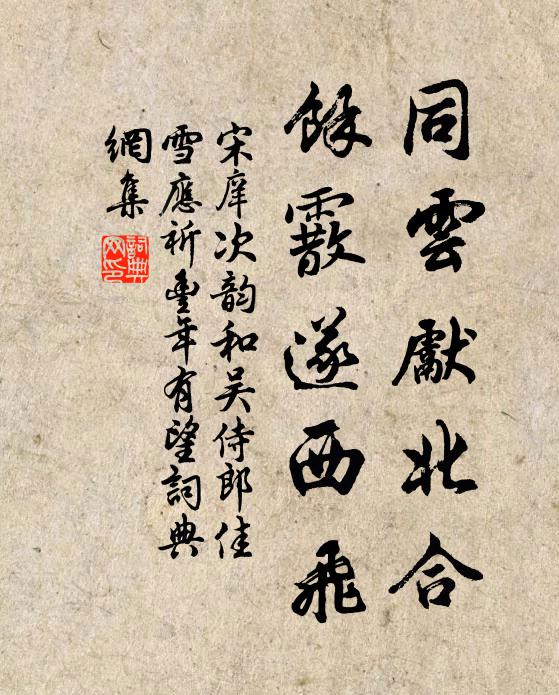 同雲獻北合
餘霰遂西飛
宋庠次韵和吴侍郎佳
雪應祈豊年有望詞典
網集
詞典
网印